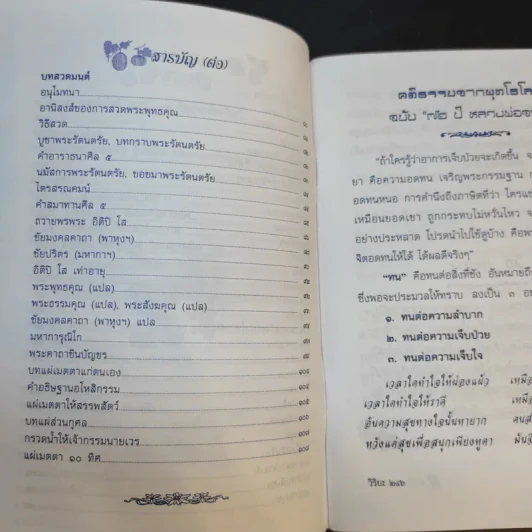 สารบัญ (ต่อ)
บทสวดมนต์
อนุโมทนา
อานิสงส์ของการสวดพระพุทธคุณ
วิธีสวด
บูชาพระรัตนตรัย, บทกราบพระรัตนตรัย
คำอาราธนาศีล ๕
นมัสการพระรัตนตรัย, ขอขมาพระรัตนตรัย
ไตรสรณคมน์
คำสมาทานศีล ๕
ถวายพรพระ อิติปิ โส
ชัยมงคลคาถา (พาหุงฯ)
ชัยปริตร (มหากาฯ)
อิติปิ โส เท่าอายุ
พระพุทธคุณ (แปล)
พระธรรมคุณ (แปล), พระสังฆคุณ (แปล)
ชัยมงคลคาถา (พาหุงฯ) แปล
มหาการุณิโก
พระคาถาชินบัญชร
บทแผ่เมตตาแก่ตนเอง
คำอธิษฐานอโหสิกรรม
แผ่เมตตาให้สรรพสัตว์
บทแผ่ส่วนกุศล
กรวดน้ำให้เจ้ากรรมนายเวร
แผ่เมตตา ๑๐ ทิศ
คติธรรมจากพุทโธโล
ฉบับ "๗๒ ปี หลวงพ่อ
"ถ้าใครรู้ว่าอาการเจ็บป่วยจะเกิดขึ้น
ยา คือความอดทน เจริญพระกรรมฐาน
อดทนหนอ การคำนึงถึงภาษิตที่ว่า ใครแช่
เหมือนยอดเขา ถูกกระทบไม่หวั่นไหว
อย่างประหลาด โปรดนำไปใช้ดูบ้าง คือพ
จิตอดทนให้ได้ ได้ผลดีจริงๆ"
"ทน" คือทนต่อสิ่งที่ชัง อันหมายถึง
ซึ่งพอจะประมวลให้ทราบ ลงเป็น ๓ อย่
๑. ทนต่อความลำบาก
๒. ทนต่อความเจ็บป่วย
๓. ทนต่อความเจ็บใจ
เวลาใดทำใจให้ผ่องแผ้ว เหมือ
เวลาใดทำใจให้ราคี เหมือ
อันความสุขทางใจนั้นหายาก คนส
หวังแค่สุขเพื่อสนุกเพียงหูตา
วิริยะ ๒๔๖